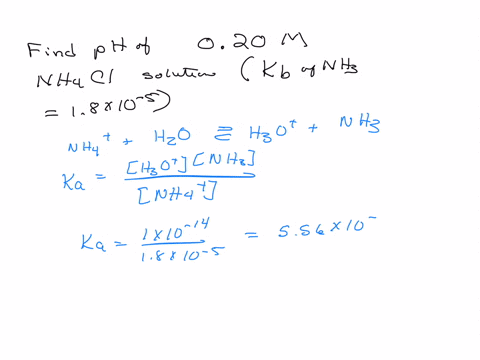 Find pH of 0.20 M
NH4Cl solution (Kb of NH3
= 1.8×10⁻⁵)
NH4⁺ + H2O ⇌ H3O⁺ + NH3
Ka = [H3O⁺][NH3] / [NH4⁺]
Ka = 1×10⁻¹⁴ / 1.8×10⁻⁵ = 5.56×10⁻